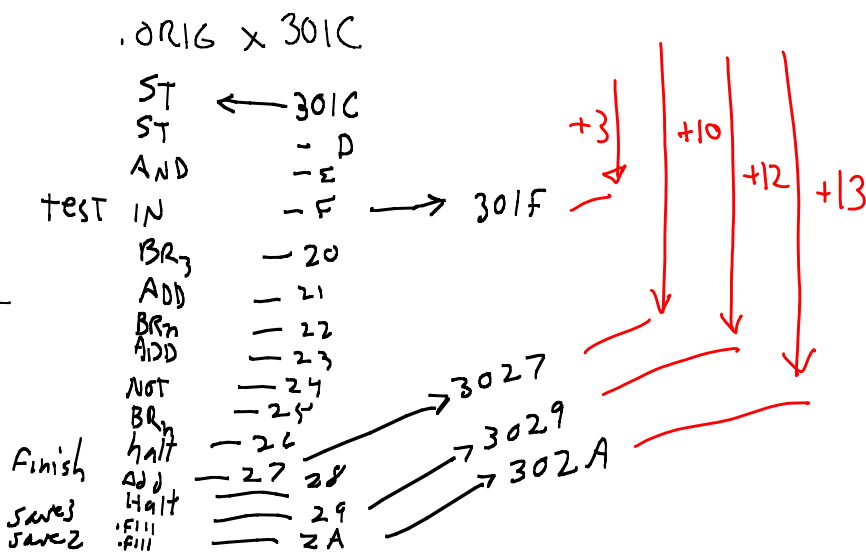 .ORIG x 301C
ST ← 301C
ST - D
AND - E
test IN - F → 301F
BRz - 20
ADD - 21
BRn - 22
ADD - 23
NOT - 24
BRn - 25
halt - 26
Finish Add - 27 → 3027
Halt 28
save3 .fill 29 → 3029
save2 .fill 2A → 302A
+3
+10
+12
+13